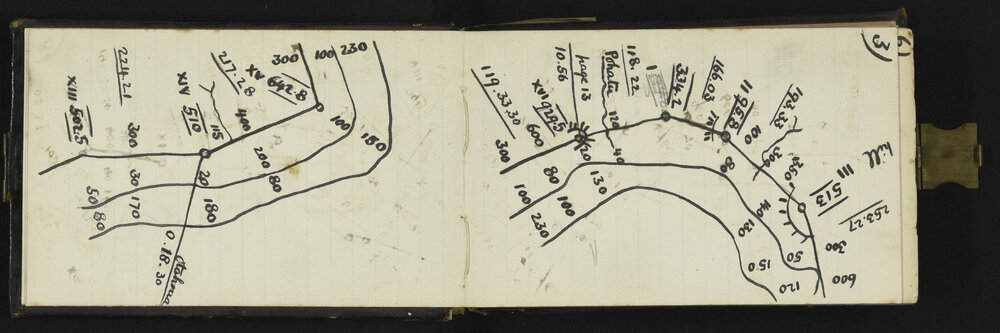 300
100
230
XV 642.8
217.28
400
100
180
XIV 510
115
200
80
224.21
XIII 502.5
300
20
30
170
180
50
80
0.18.30
3)
118.22
Pohatu
page 13
10.56
XVI 929.5
119.33.30
600
300
120
40
20
80
130
100
100
230
I
334.2
166.03
II 958
100
80
193.33
300
350
hill
III
513
253.27
300
600
140
130
50
150
120